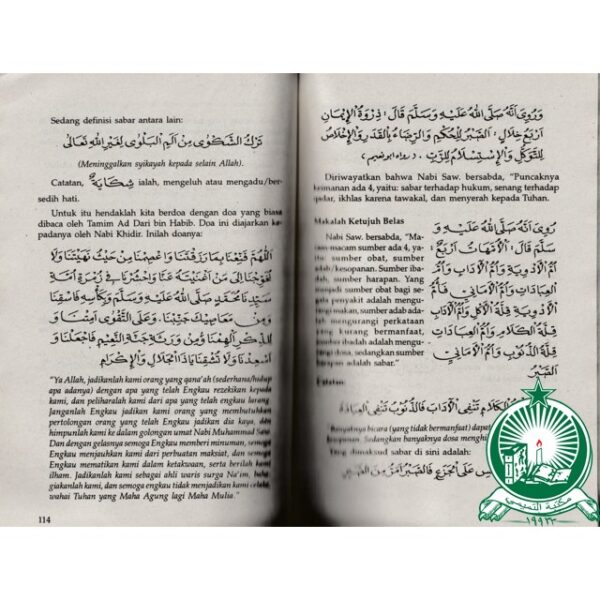 Sedang definisi sabar antara lain:
تَرْكُ الشَّكْوٰى مِنْ اَلَمِ الْبَلْوٰى لِغَيْرِ اللهِ تَعَالٰى
(Meninggalkan syikayah kepada selain Allah).
Catatan, شِكَايَةٌ ialah, mengeluh atau mengadu/ber-
sedih hati.
Untuk itu hendaklah kita berdoa dengan doa yang biasa
dibaca oleh Tamim Ad Dari bin Habib. Doa ini diajarkan ke-
padanya oleh Nabi Khidir. Inilah doanya:
اَللّٰهُمَّ قَنِّعْنَا بِمَا رَزَقْتَنَا وَاعْصِمْنَا مِنْ حَيْثُ نَهَيْتَنَا وَلَا
تُحْوِجْنَا اِلٰى مَنْ اَغْنَيْتَهُ عَنَّا وَاحْشُرْنَا فِى زُمْرَةِ اُمَّةِ
سَيِّدِنَا مُحَمَّدٍ صَلَّى اللهُ عَلَيْهِ وَسَلَّمَ وَبِكَأْسِهِ فَاسْقِنَا
وَمِنْ مَعَاصِيْكَ جَنِّبْنَا. وَعَلَى التَّقْوٰى اَمِتْنَا وَ
لِلذِّكْرِ اَلْهِمْنَا وَمِنْ وَرَثَةِ جَنَّةِ النَّعِيْمِ فَاجْعَلْنَا وَ
اَسْعِدْنَا وَلَا تُشْقِنَا يَاذَا الْجَلَالِ وَالْاِكْرَامِ
"Ya Allah, jadikanlah kami orang yang qana'ah (sederhana/hidup
apa adanya) dengan apa yang telah Engkau rezekikan kepada
kami, dan peliharalah kami dari apa yang telah engkau larang.
Janganlah Engkau jadikan kami orang yang membutuhkan
pertolongan orang yang telah Engkau jadikan dia kaya, dan
himpunlah kami ke dalam golongan umat Nabi Muhammad Saw.
Dan dengan gelasnya semoga Engkau memberi minuman, semoga
Engkau menjauhkan kami dari perbuatan maksiat, dan semoga
Engkau mematikan kami dalam ketakwaan, serta berilah kami
ilham. Jadikanlah kami sebagai ahli waris surga Na'im, baha-
giakanlah kami, dan semoga engkau tidak menjadikan kami celaka,
wahai Tuhan yang Maha Agung lagi Maha Mulia."
114
وَرُوِىَ اَنَّهُ صَلَّى اللهُ عَلَيْهِ وَسَلَّمَ قَالَ: ذِرْوَةُ الْاِيْمَانِ
اَرْبَعُ خِلَالٍ: اَلصَّبْرُ لِلْحُكْمِ وَالرِّضَاءُ بِالْقَدَرِ وَالْاِخْلَاصُ
لِلتَّوَكُّلِ وَالْاِسْتِسْلَامُ لِلرَّبِّ (رواه ابو نعيم)
Diriwayatkan bahwa Nabi Saw. bersabda, "Puncaknya
keimanan ada 4, yaitu: sabar terhadap hukum, senang terhadap
qadar, ikhlas karena tawakal, dan menyerah kepada Tuhan.
Makalah Ketujuh Belas
Nabi Saw. bersabda, "Ma-
cam-macam sumber ada 4, ya-
itu, sumber obat, sumber
adab/kesopanan. Sumber iba-
dah, sumber harapan. Yang
menjadi sumber obat bagi se-
gala penyakit adalah mengu-
rangi makan, sumber adab ada-
lah mengurangi perkataan
yang kurang bermanfaat,
sumber ibadah adalah mengu-
rangi dosa, sedangkan sumber
harapan adalah sabar."
رُوِىَ اَنَّهُ صَلَّى اللهُ عَلَيْهِ وَ
سَلَّمَ قَالَ: اَلْاُمَّهَاتُ اَرْبَعٌ:
اُمُّ الْاَدْوِيَةِ وَاُمُّ الْاٰدَابِ وَاُمُّ
الْعِبَادَاتِ وَاُمُّ الْاَمَانِيِّ. فَاُمُّ
الْاَدْوِيَةِ قِلَّةُ الْاَكْلِ وَاُمُّ الْاٰدَابِ
قِلَّةُ الْكَلَامِ وَاُمُّ الْعِبَادَاتِ
قِلَّةُ الذُّنُوْبِ وَاُمُّ الْاَمَانِيِّ
الصَّبْرُ
Catatan.
الْكَلَامِ تَنْفِى الْاٰدَابَ فَالذُّنُوْبُ تَنْفِى الْعِبَادَةَ
Banyaknya bicara (yang tidak bermanfaat) dapat
Sedangkan banyaknya dosa menghi
yang dimaksud sabar di sini adalah:
عَلَى الْجَزَعِ فَالصَّبْرُ اَمْرٌ مِنَ
مكتبة التميمي
١٩٩٣